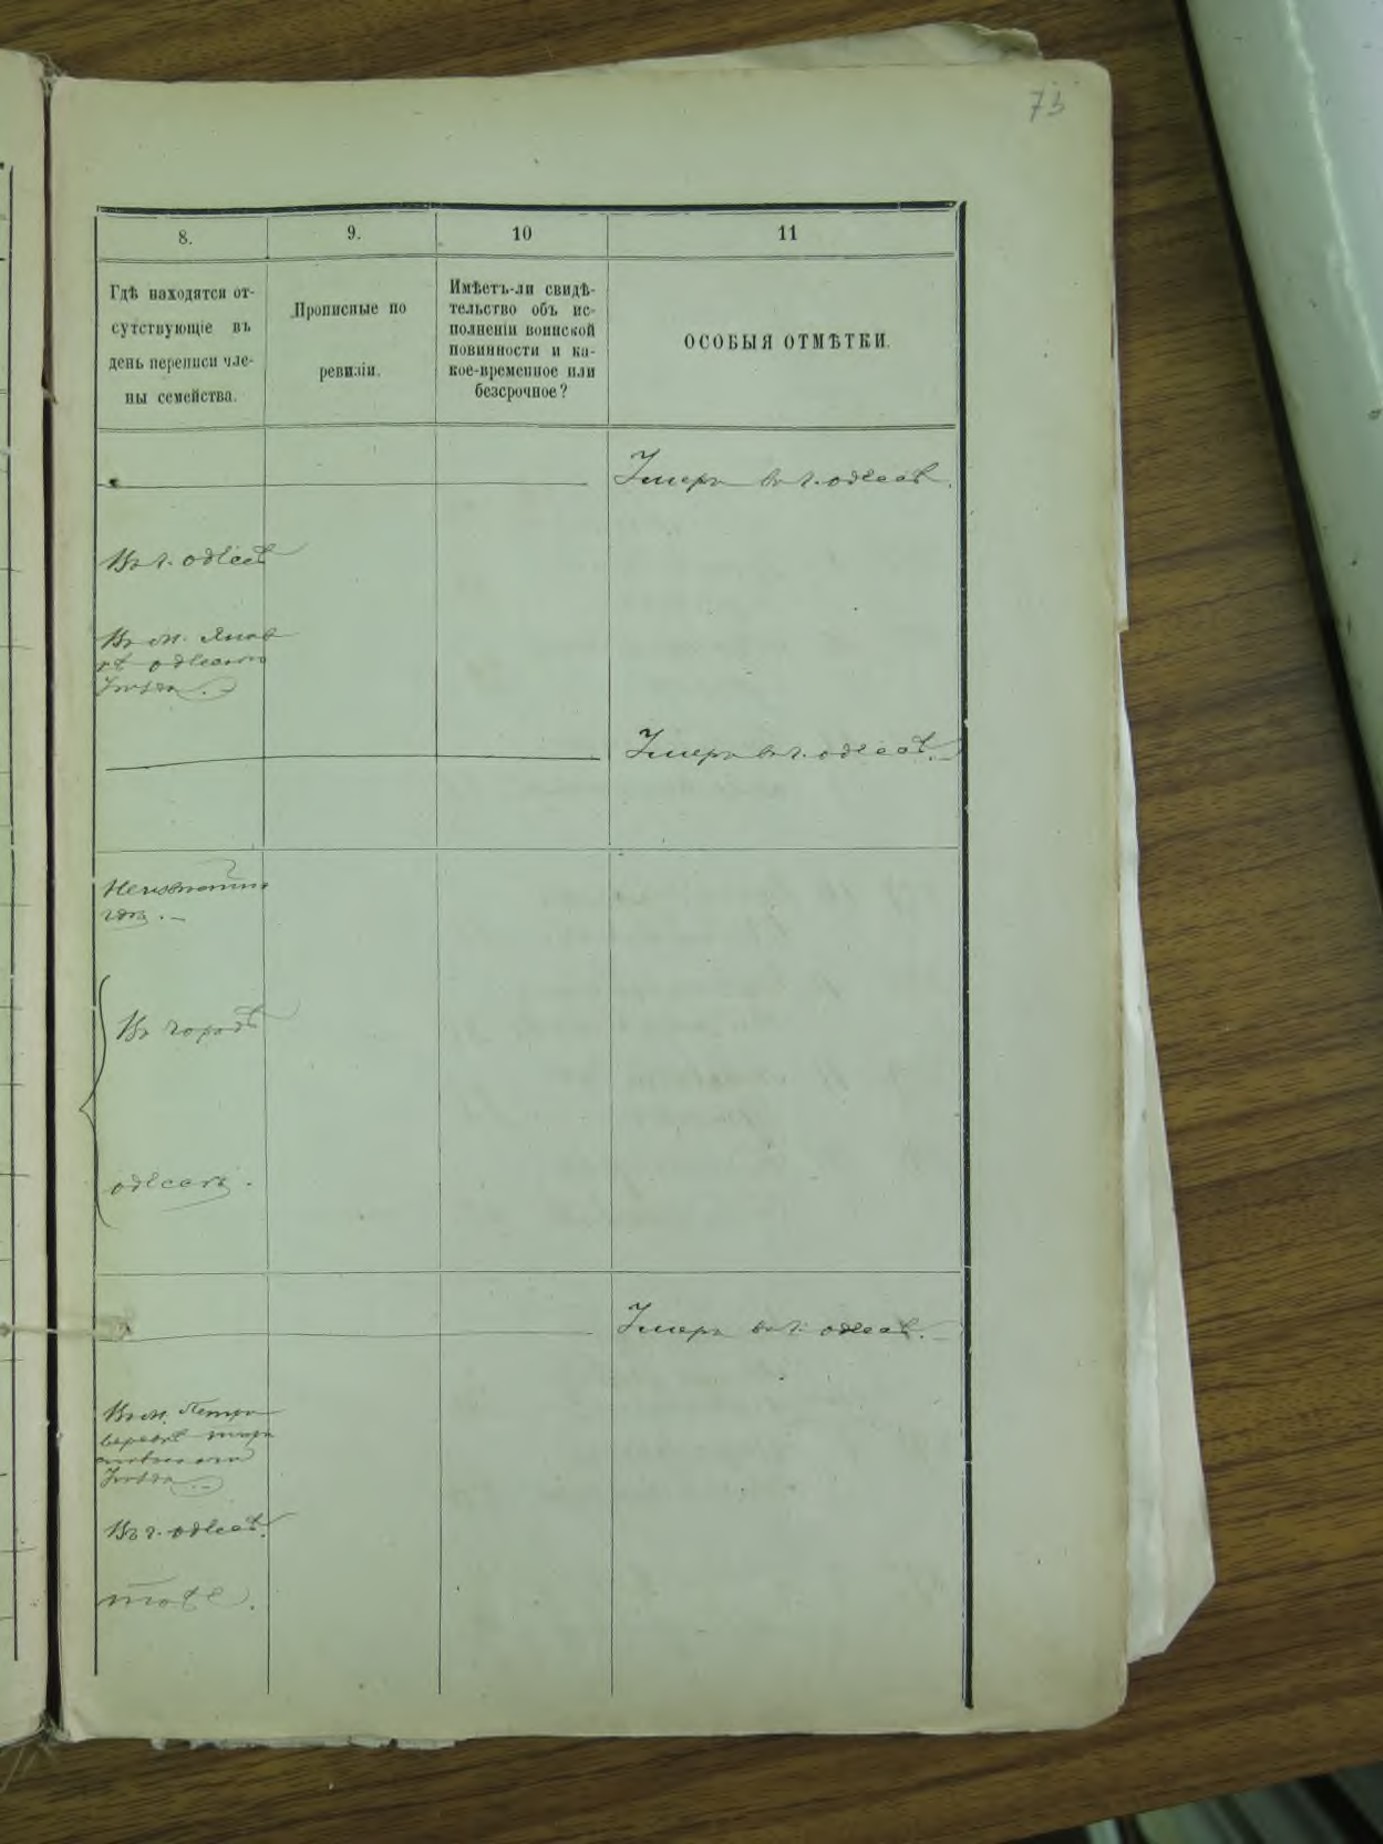 73
8.
9.
10
11
Гдѣ находятся от-
сутствующіе въ
день переписи чле-
ны семейства.
Прописные по
ревизіи.
Имѣетъ-ли свидѣ-
тельство объ ис-
полненіи воинской
повинности и ка-
кое-временное или
безсрочное?
ОСОБЫЯ ОТМѢТКИ.
Умеръ въ г. одессѣ.
Въ г. одессѣ
Въ м. Янов
кѣ одесскаго
Уѣзда.
Умеръ въ г. одессѣ.
Неизвѣстно
гдѣ.
Въ городѣ
одессѣ.
Умеръ въ г. одессѣ.
Въ м. Петро
веровкѣ тира
спольскаго
Уѣзда
Въ г. одессѣ.
тоже.